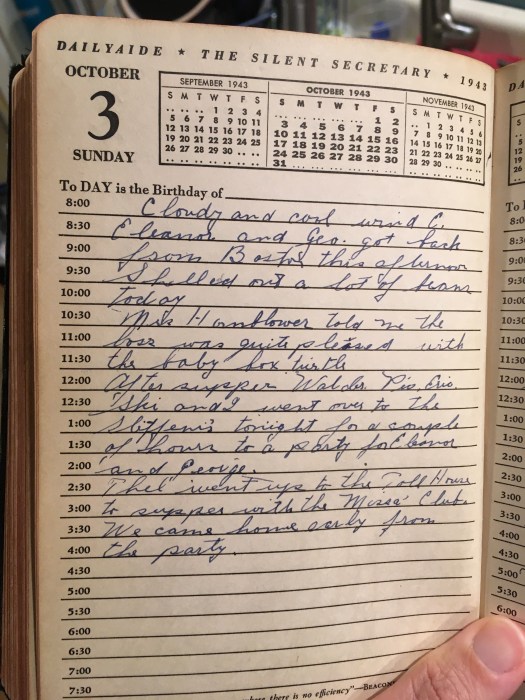 DAILYAIDE ★ THE SILENT SECRETARY ★ 1943
OCTOBER
3
SUNDAY
SEPTEMBER 1943
S M T W T F S
.. .. .. 1 2 3 4
5 6 7 8 9 10 11
12 13 14 15 16 17 18
19 20 21 22 23 24 25
26 27 28 29 30 .. ..
OCTOBER 1943
S M T W T F S
.. .. .. .. .. 1 2
3 4 5 6 7 8 9
10 11 12 13 14 15 16
17 18 19 20 21 22 23
24 25 26 27 28 29 30
31 .. .. .. .. .. ..
NOVEMBER 1943
S M T W T F S
.. 1 2 3 4 5 6
7 8 9 10 11 12 13
14 15 16 17 18 19 20
21 22 23 24 25 26 27
28 29 30 .. .. .. ..
To DAY is the Birthday of
8:00 Cloudy and cool wind E.
8:30 Eleanor and Geo. got back
9:00 from Boston this afternoon
9:30 Shelled out a lot of beans
10:00 today
10:30 Mrs Hornblower told me the
11:00 boss was quite pleased with
11:30 the baby box turtle
12:00 After supper Walder, Eric
12:30 Ski and I went over to the
1:00 tonight for a couple
1:30 of hours to a party for Eleanor
2:00 and George.
2:30 Thel' went up to the Toll House
3:00 to supper with the Club.
3:30 We came home early from
4:00 the party.
4:30
5:00
5:30
6:00
6:30
7:00
7:30
where there is no efficiency"—BEACON